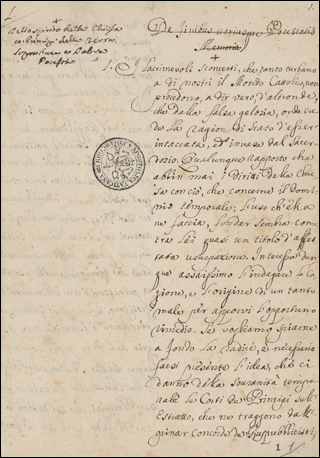 Dello spirito della Chiesa
co' Principi della Terra
De finibus utriusque Potestatis
Memoria
1. I Lacrimevoli Sconcerti, che tanto turbano
a dì nostri il Mondo Cattolico, non
prendono, a dir vero, d'altronde,
che dalla falsa gelosia, onde cre-
de la Ragion di Stato d'esser
intaccata, ed invasa dal Sacer-
dozio. Qualunque rapporto che
abbin mai i Dirigi della Chie-
sa con ciò, che concerne il domi-
nio temporale; l'uso ch'Ella
ne faccia, l'onder sembra contra
Lei quasi un titolo d'affet-
tata usurpazione. Interessa dun-
que assaissimo l'indagare la ra-
gione, e l'origine di un tanto
male per apporvi l'opportuno
rimedio. Se vogliamo spiarne
a fondo la radice, è necessario
farsi presente l'idea, che ci
danno della sovranità tempo-
rale le Corti de' Principi sull'
che ne traggono dall'